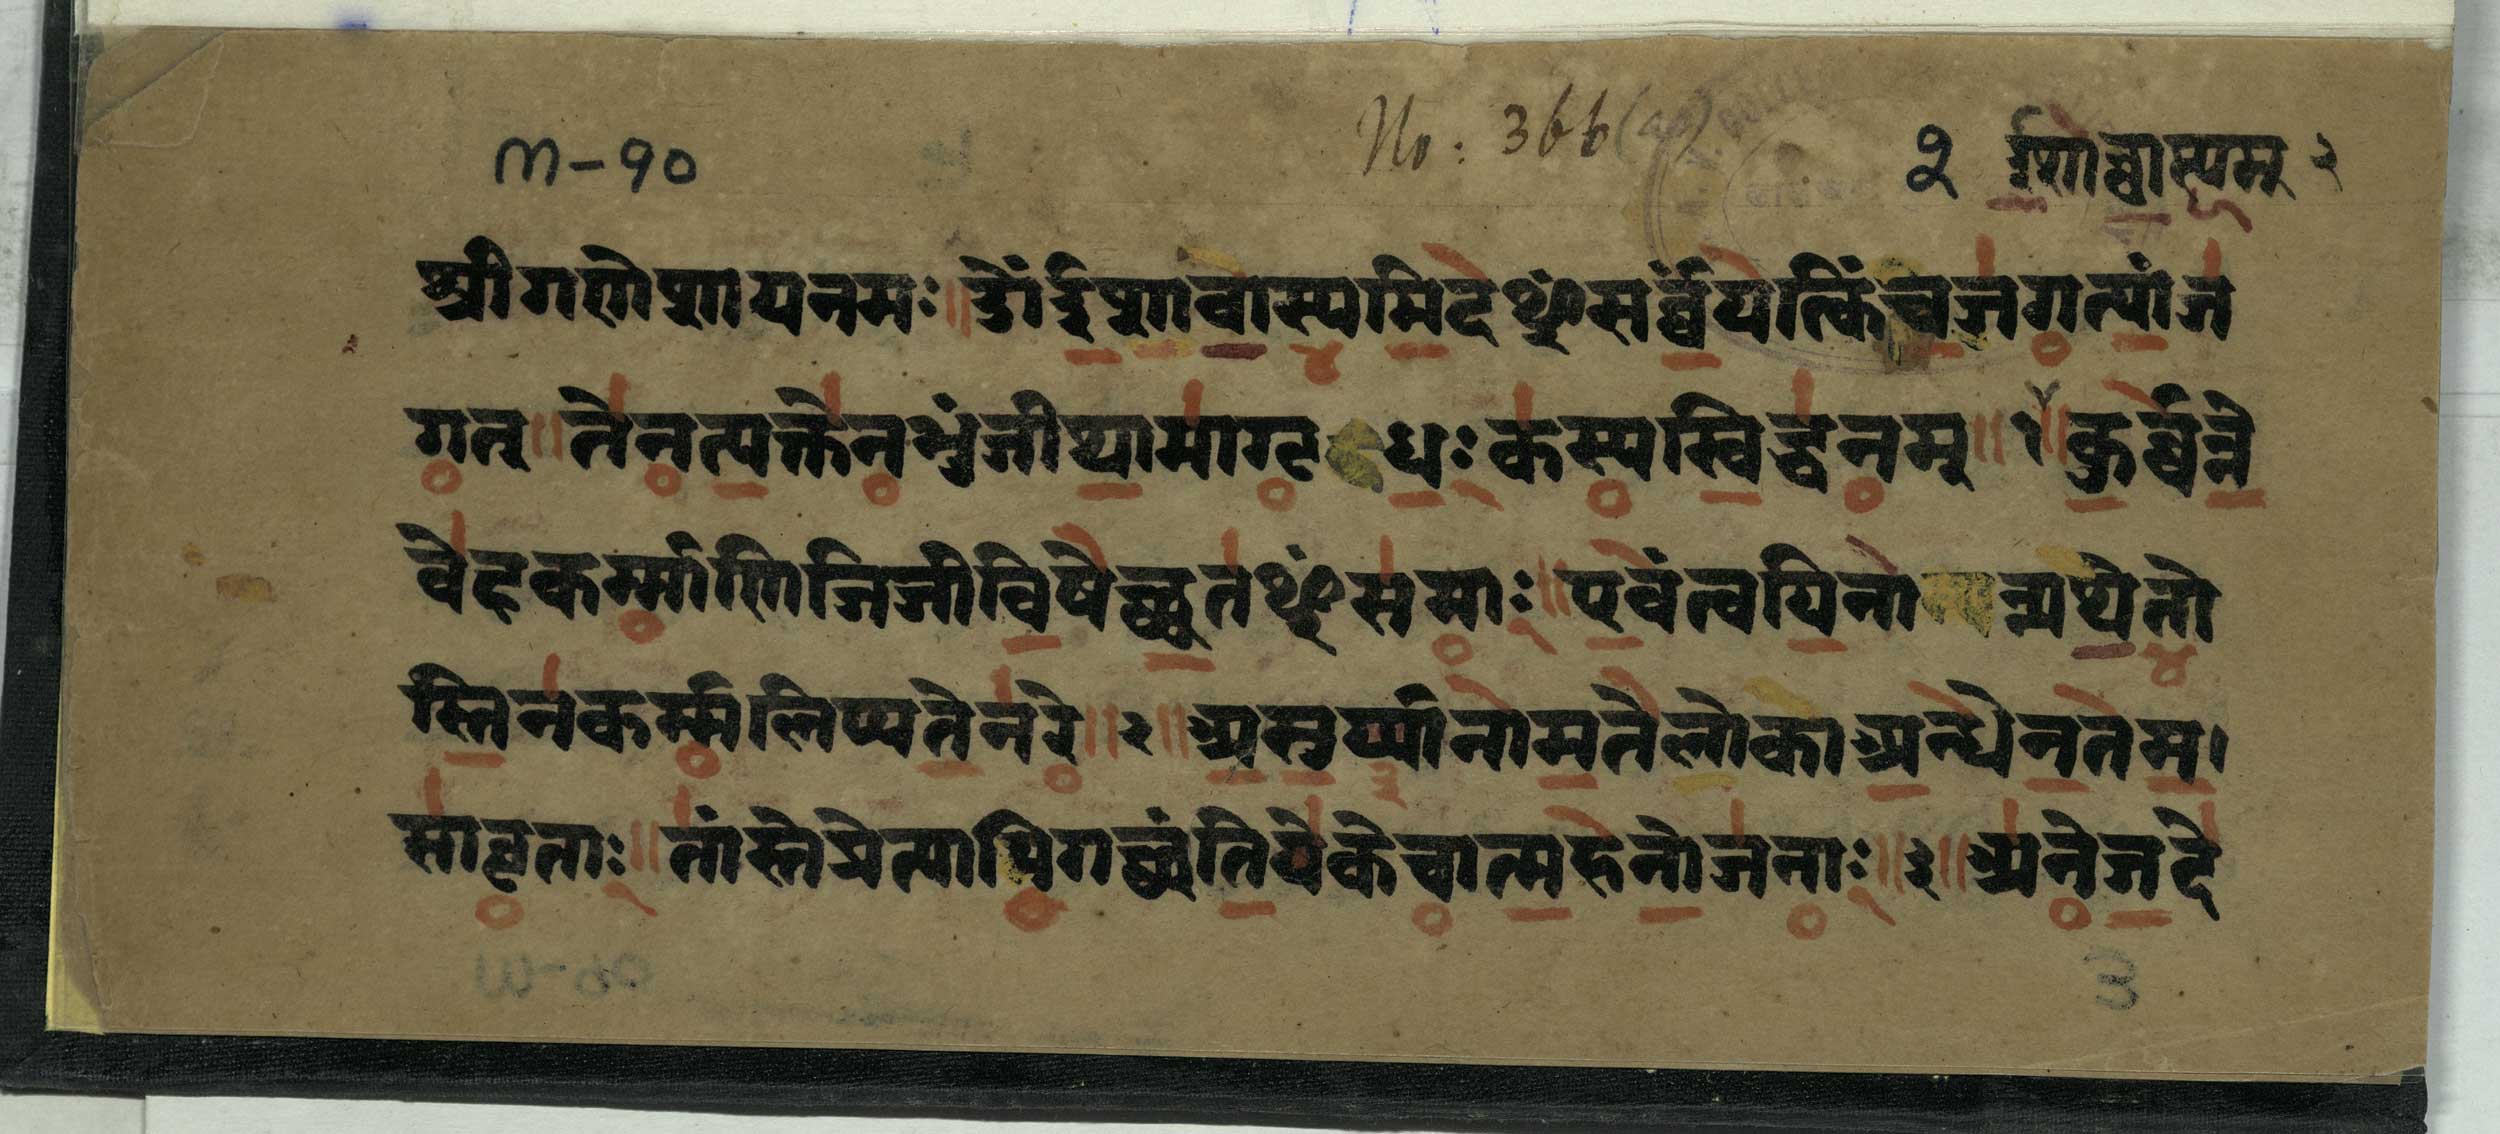 No: 366(a)
m-90 २ ईशाव्वास्यम् २
श्रीगणेशायनमः॥ॐईशावास्यमिदᳪसर्व्वंयत्किंचजगत्यांज
गत्॥तेनत्यक्तेनभुंजीथामागृधःकस्यस्विद्धनम्॥१॥कुर्व्वन्ने
वेहकर्म्माणिजिजीविषेच्छतᳪसमाः॥एवंत्वयिनान्यथेतो
स्तिनकर्म्मलिप्यतेनरे॥२॥असुर्य्यानामतेलोकाअन्धेनतम।
सावृताः॥तांस्तेप्रेत्यापिगच्छंतियेकेचात्महनोजनाः॥३॥अनेजदे